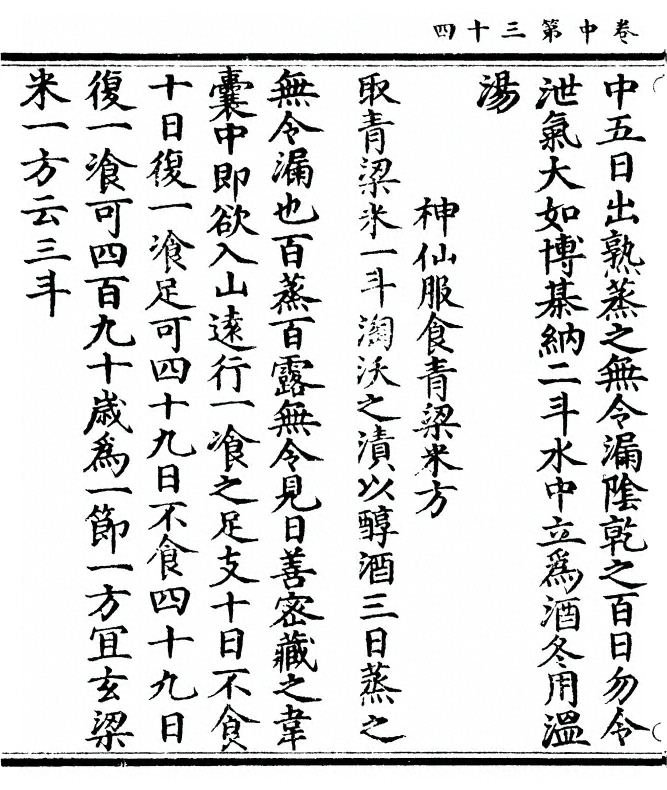 卷中第三十四
中五日出熟蒸之無令漏陰乾之百日勿令
泄氣大如博棊納二斗水中立爲酒冬用溫
湯
神仙服食青粱米方
取青粱米一斗淘沃之漬以醇酒三日蒸之
無令漏也百蒸百露無令見日善密藏之韋
囊中即欲入山遠行一飡之足支十日不食
十日復一飡足可四十九日不食四十九日
復一飡可四百九十歲爲一節一方宜玄粱
米一方云三斗